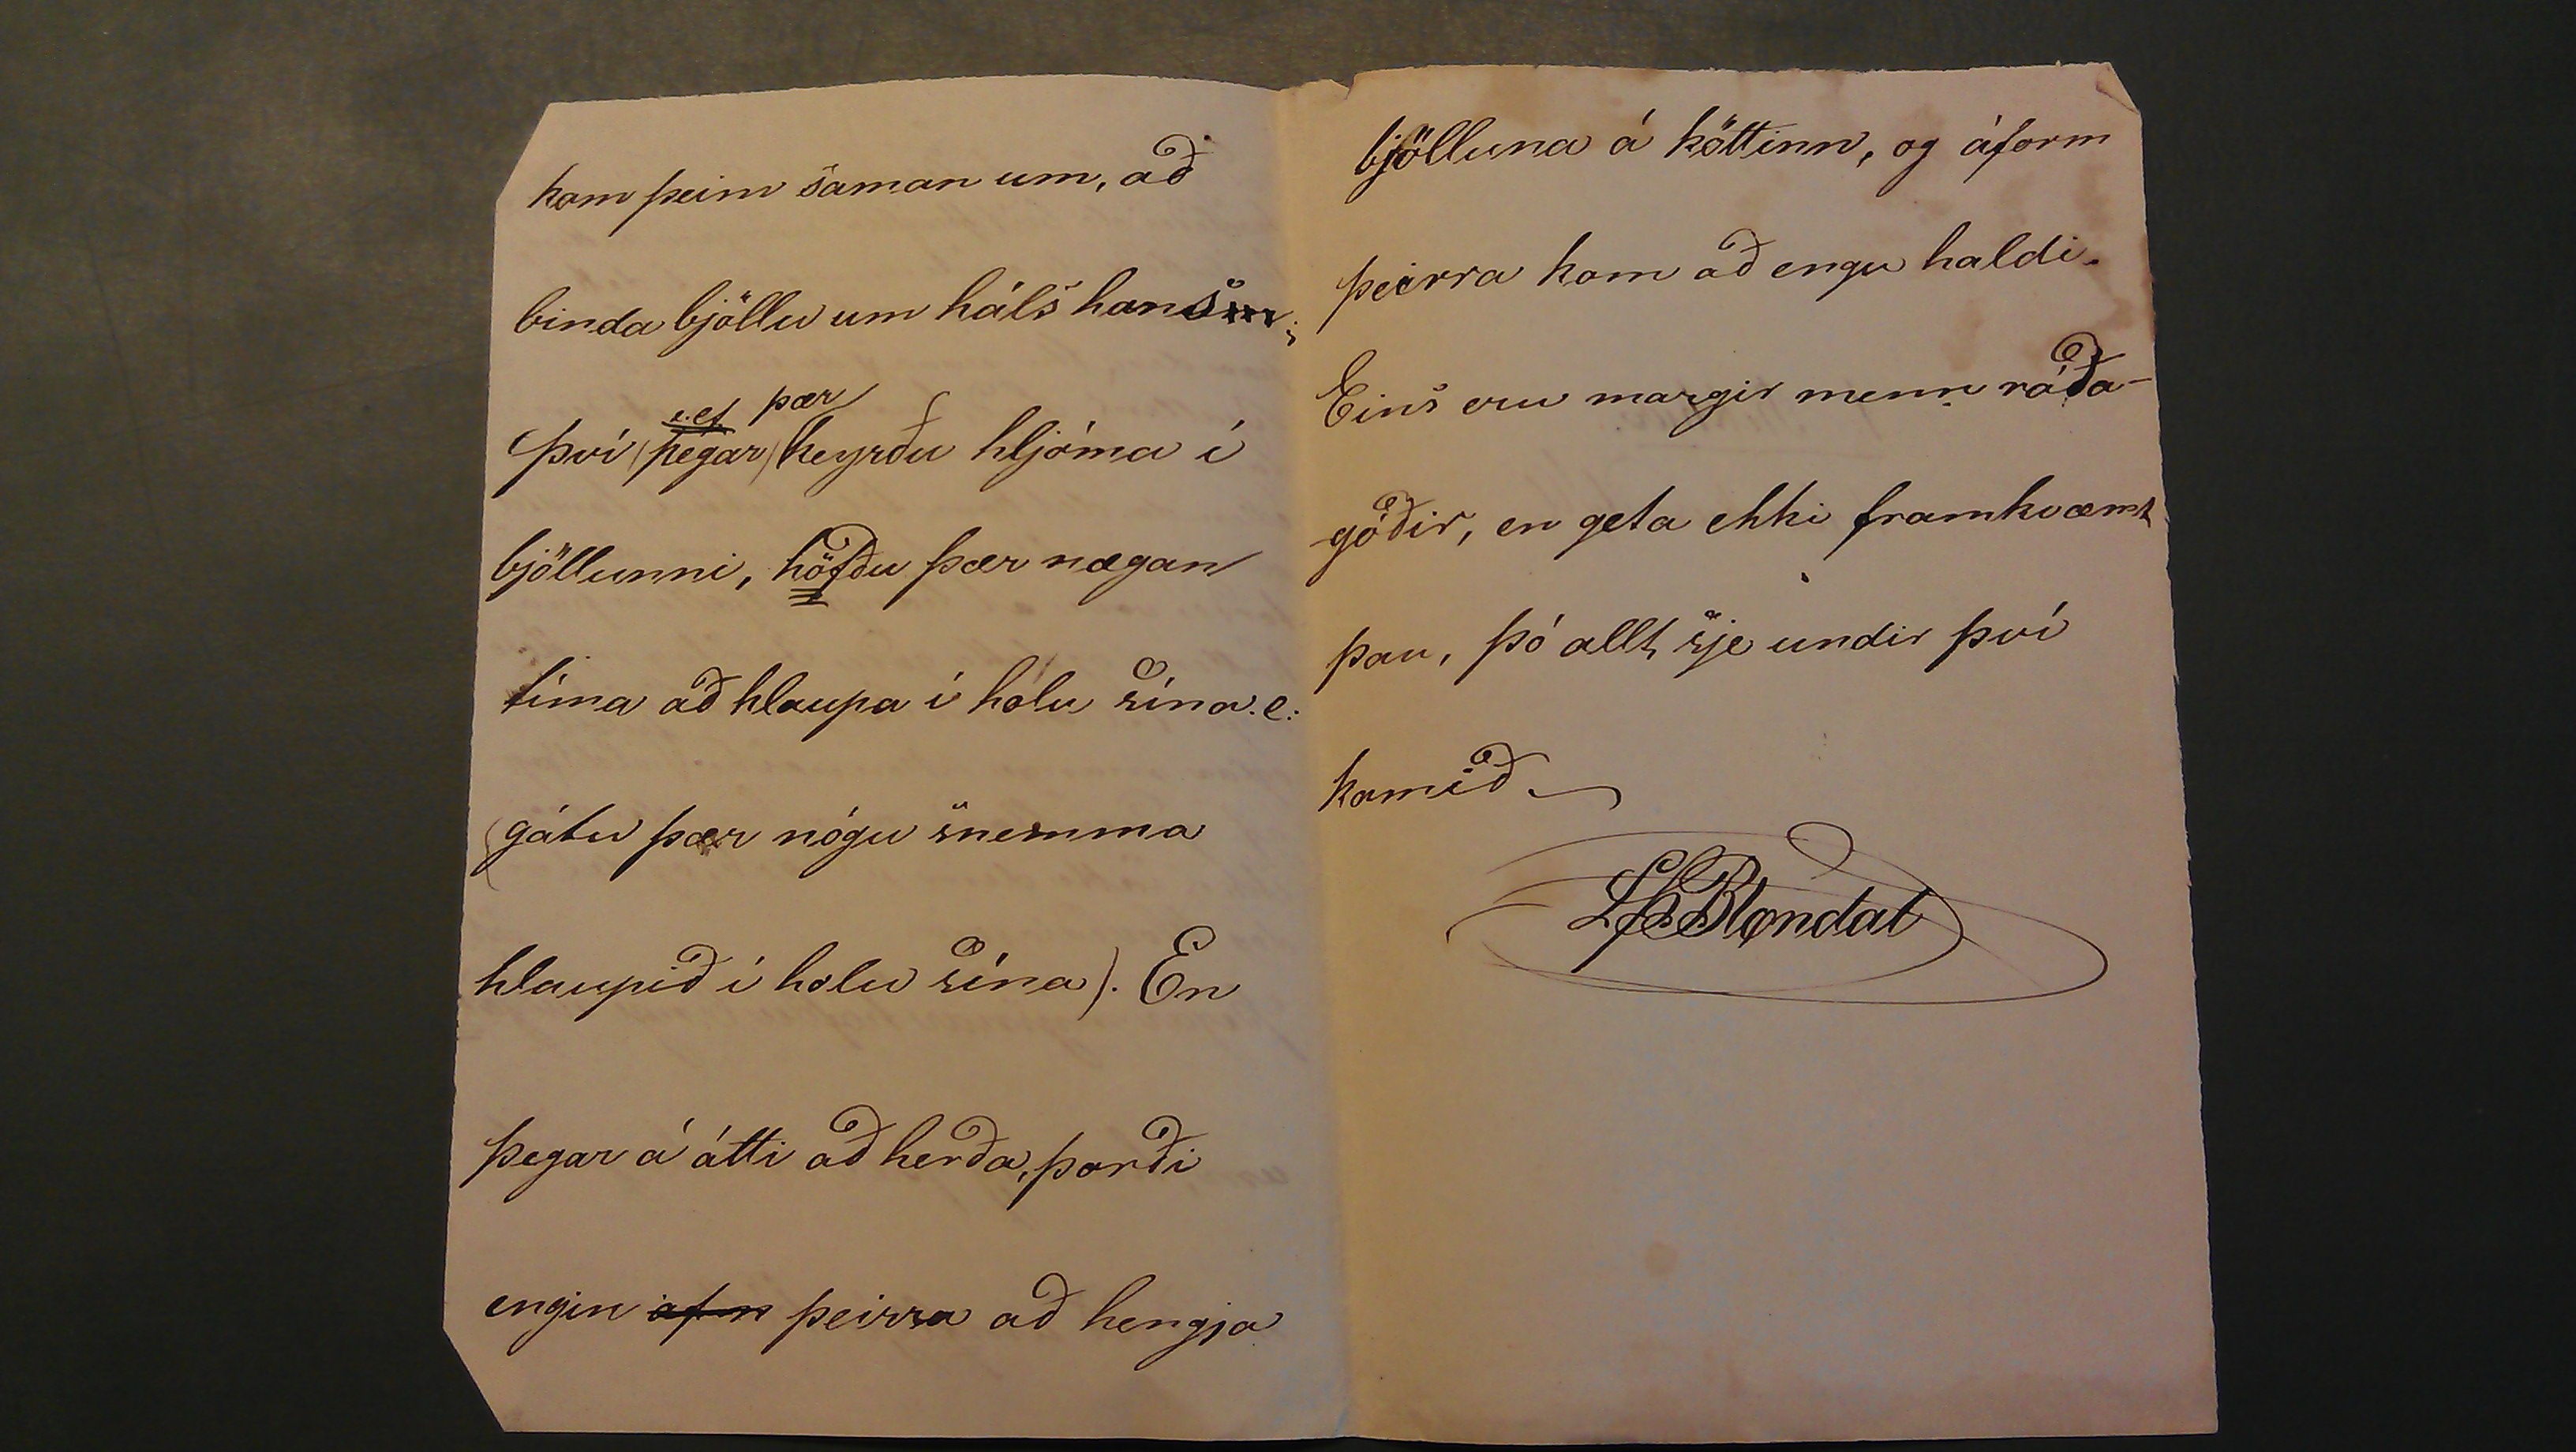 kom þeim saman um, að
binda bjöllu um háls hans;
ef þær
því (þegar) heyrðu hljóma í
bjöllunni, höfðu þær nægan
tíma að hlaupa í holu sína. e:
(gátu þær nógu snemma
hlaupið í holu sína). En
þegar á átti að herða, þorði
engin af þeirra að hengja
bjölluna á köttinn, og áform
þeirra kom að engu haldi.
Eins eru margir menn ráða-
góðir, en geta ekki framkvæmt
þau, þó allt sje undir því
komið.
Blöndal